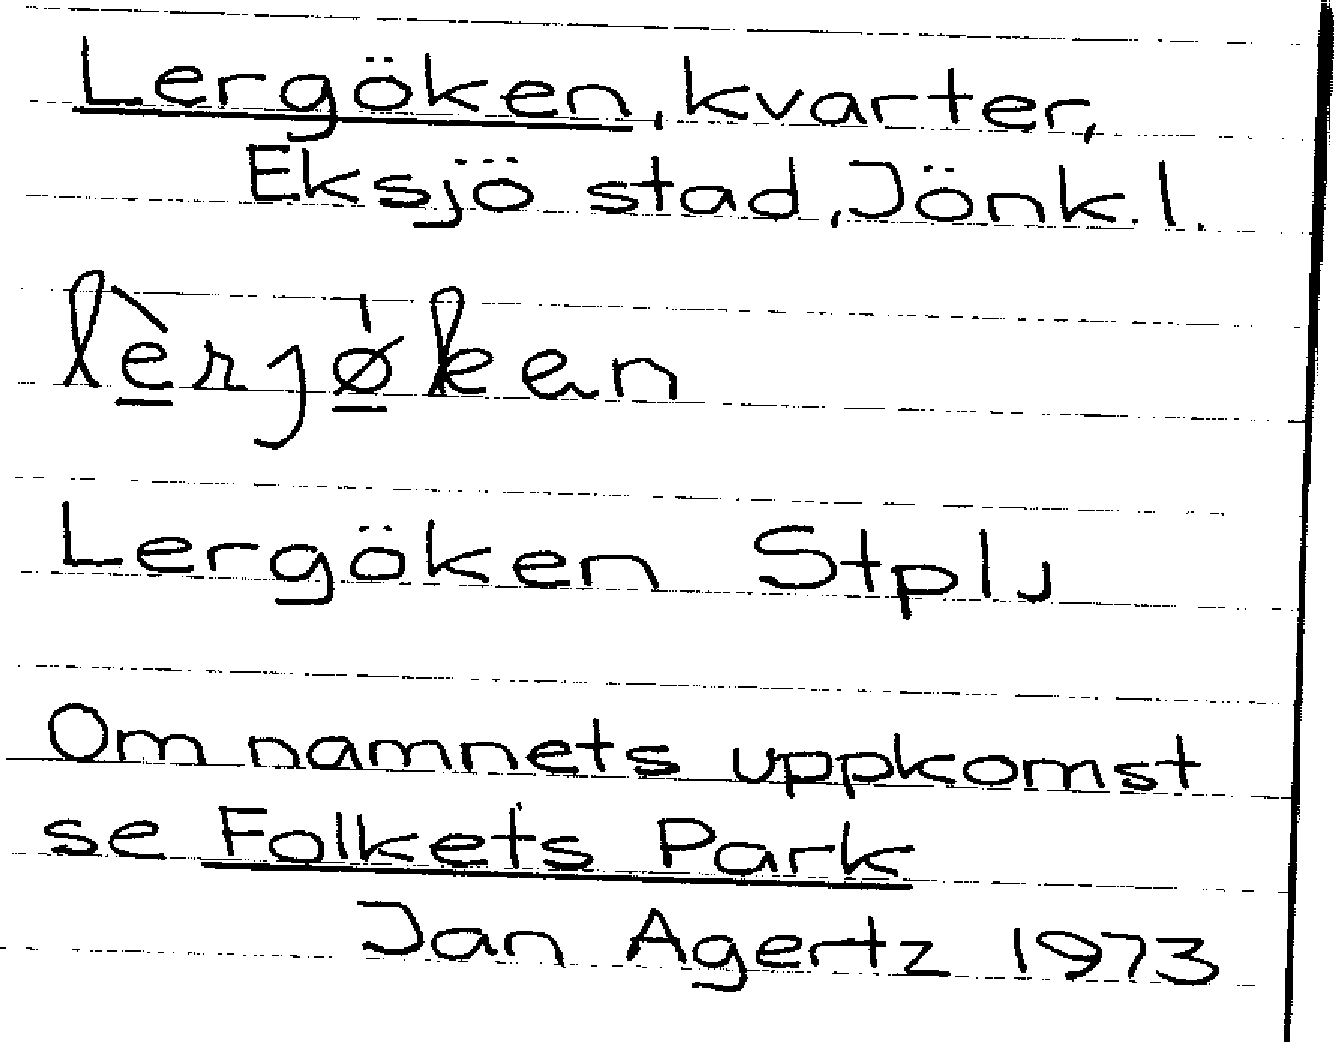 Lergöken, kvarter,
Eksjö stad, Jönk. l.
lè̠rjø̠̍kən
Lergöken Stplj
Om namnets uppkomst
se Folkets Park
Jan Agertz 1973